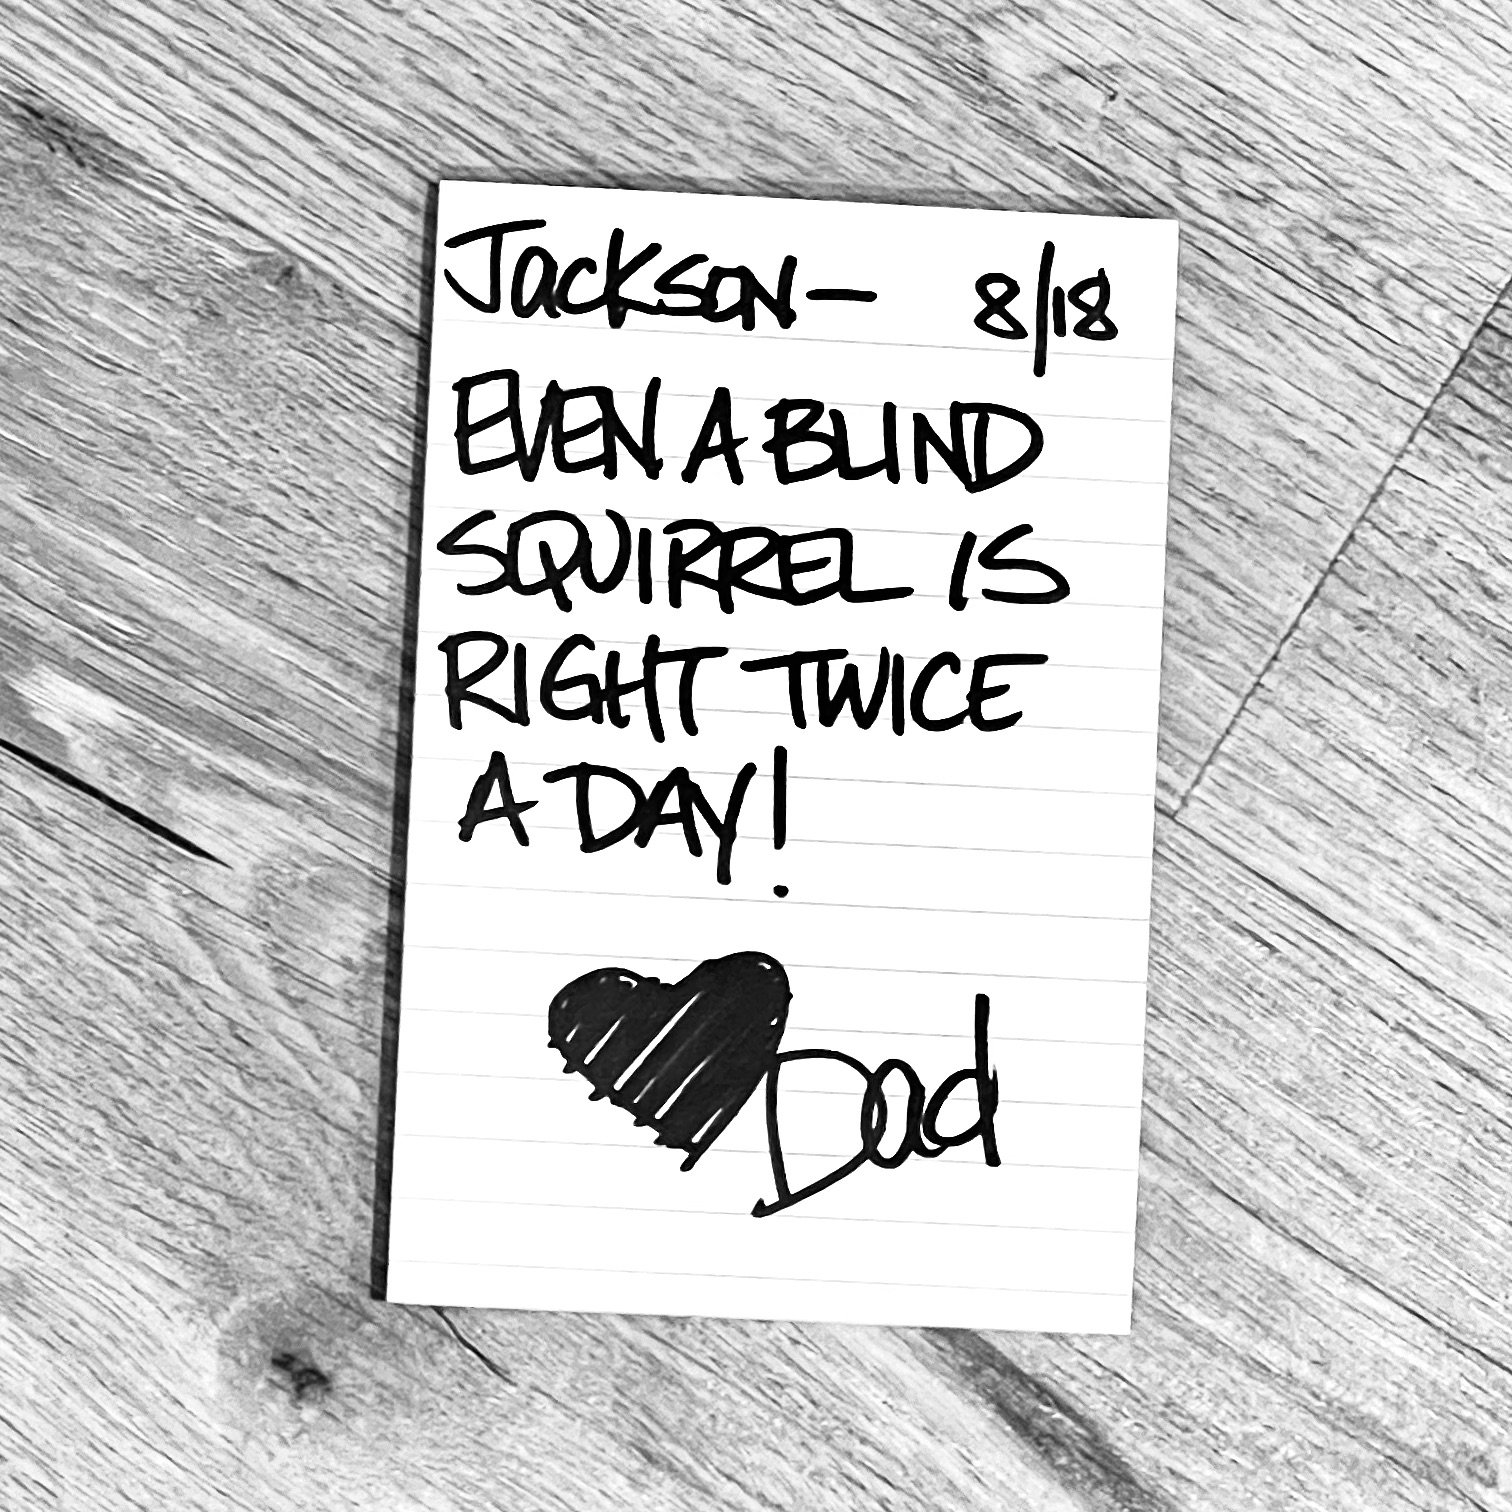 Jackson— 8/18
EVEN A BLIND
SQUIRREL IS
RIGHT TWICE
A DAY!
Dad